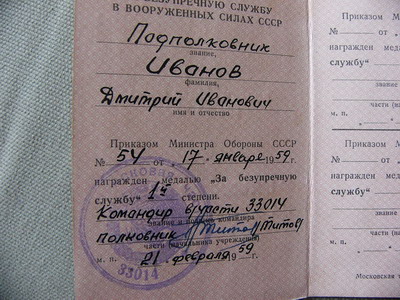 БЕЗУПРЕЧНУЮ СЛУЖБУ
В ВООРУЖЕННЫХ СИЛАХ СССР
Подполковник
звание,
Иванов
фамилия,
Дмитрий Иванович
имя и отчество
Приказом Министра Обороны СССР
№ 54 от „17" января 1959 г.
награжден медалью „За безупречную
службу" 1й степени.
Командир в/части 33014
звание и подпись командира
полковник /Титов/
части (начальника учреждения)
м. п. 21 февраля 1959 г.
33014
Приказом М
№ от „
награжден мед
службу"
звание
части (на
м. п. „
Приказом М
№ от „
награжден мед
службу"
звание
части (на
м. п. „
Московская т